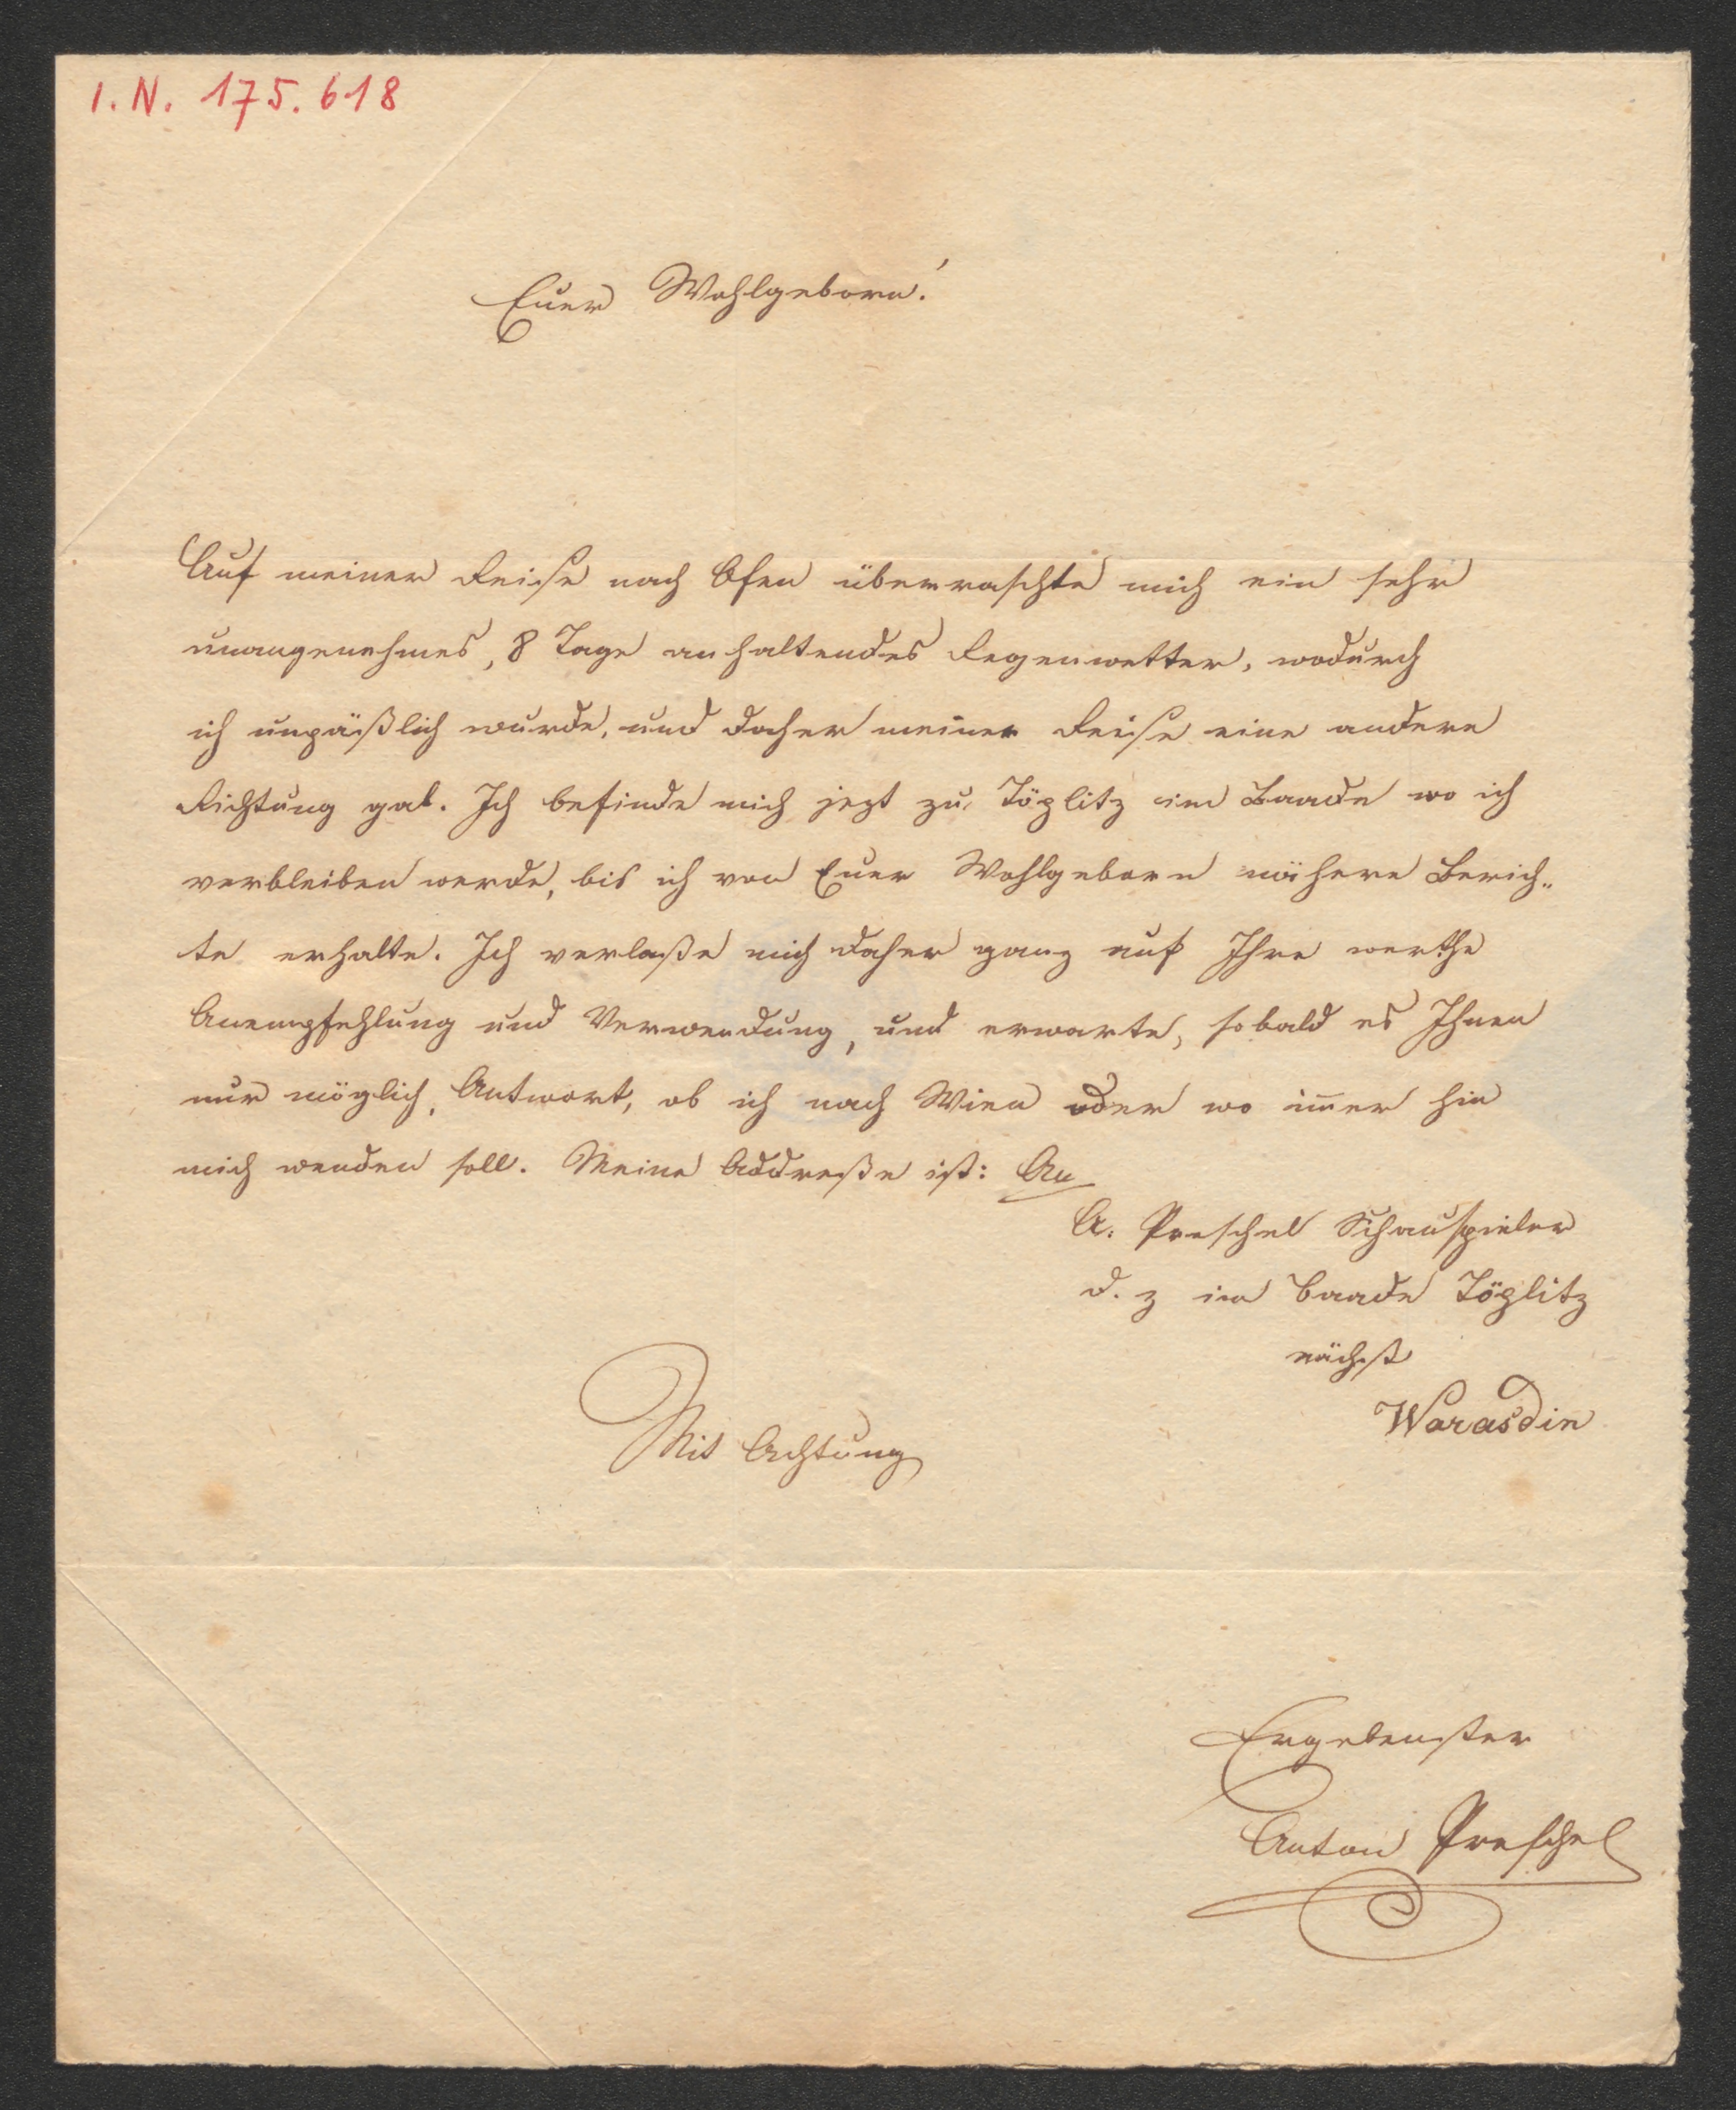 I. N. 175.618
Euer Wohlgeborn!
Auf meiner Reise nach Ofen überraschte mich ein sehr
unangenehmes, 8 Tage anhaltendes Regenwetter, wodurch
ich unpäßlich wurde, und daher meiner Reise eine andere
Richtung gab. Ich befinde mich jezt zu Töplitz im Baade wo ich
verbleiben werde, bis ich von Euer Wohlgeborn nähere Berich„
te erhalte. Ich verlaße mich daher ganz auf Ihre werthe
Anempfehlung und Verwendung, und erwarte, sobald es Ihnen
nur möglich, Antwort, ob ich nach Wien oder wo im̄er hin
mich wenden soll. Meine Addreße ist: An
A. Preschel Schauspieler
d. z im Baade Töplitz
nächst
Warasdin
Mit Achtung
Ergebenster
Anton Preschel